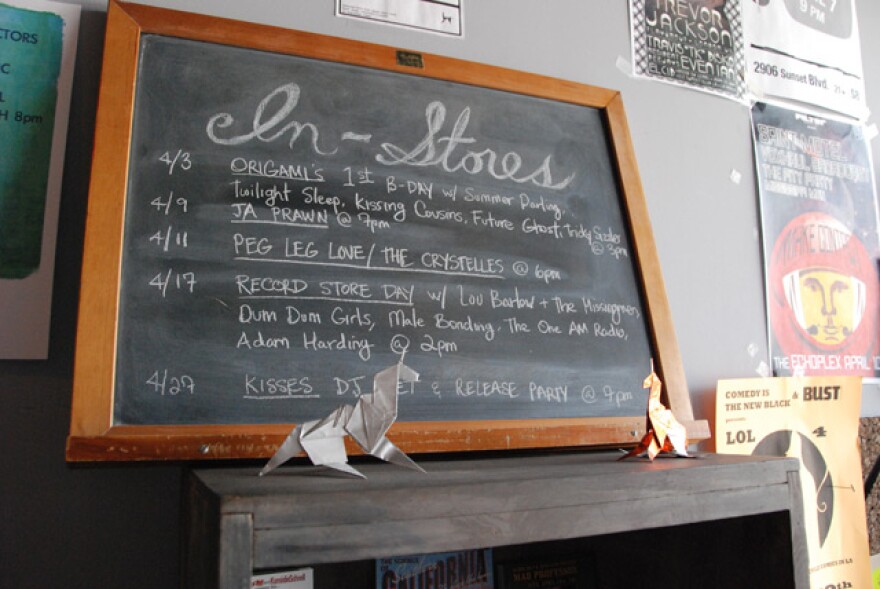 In-Stores
4/3 ORIGAMI'S 1st B-DAY w/ Summer Darling,
Twilight Sleep, Kissing Cousins, Future Ghost,
@ 3pm
4/9 JA PRAWN @ 7pm
4/11 PEG LEG LOVE/THE CRYSTELLES @ 6pm
4/17 RECORD STORE DAY w/ Lou Barlow + The Missingmen,
Dum Dum Girls, Male Bonding, The One AM Radio,
Adam Harding @ 2pm
4/27 KISSES DJ & RELEASE PARTY @ 7pm
CTORS
IC
H 8pm
TREVOR
JACKSON
9 PM
2906 Sunset Blvd. 21+
THE ECHOPLEX APRIL
COMEDY IS
THE NEW BLACK & BUST
presents
LOL
4
CALIFORNIA
MAD PROFESSOR